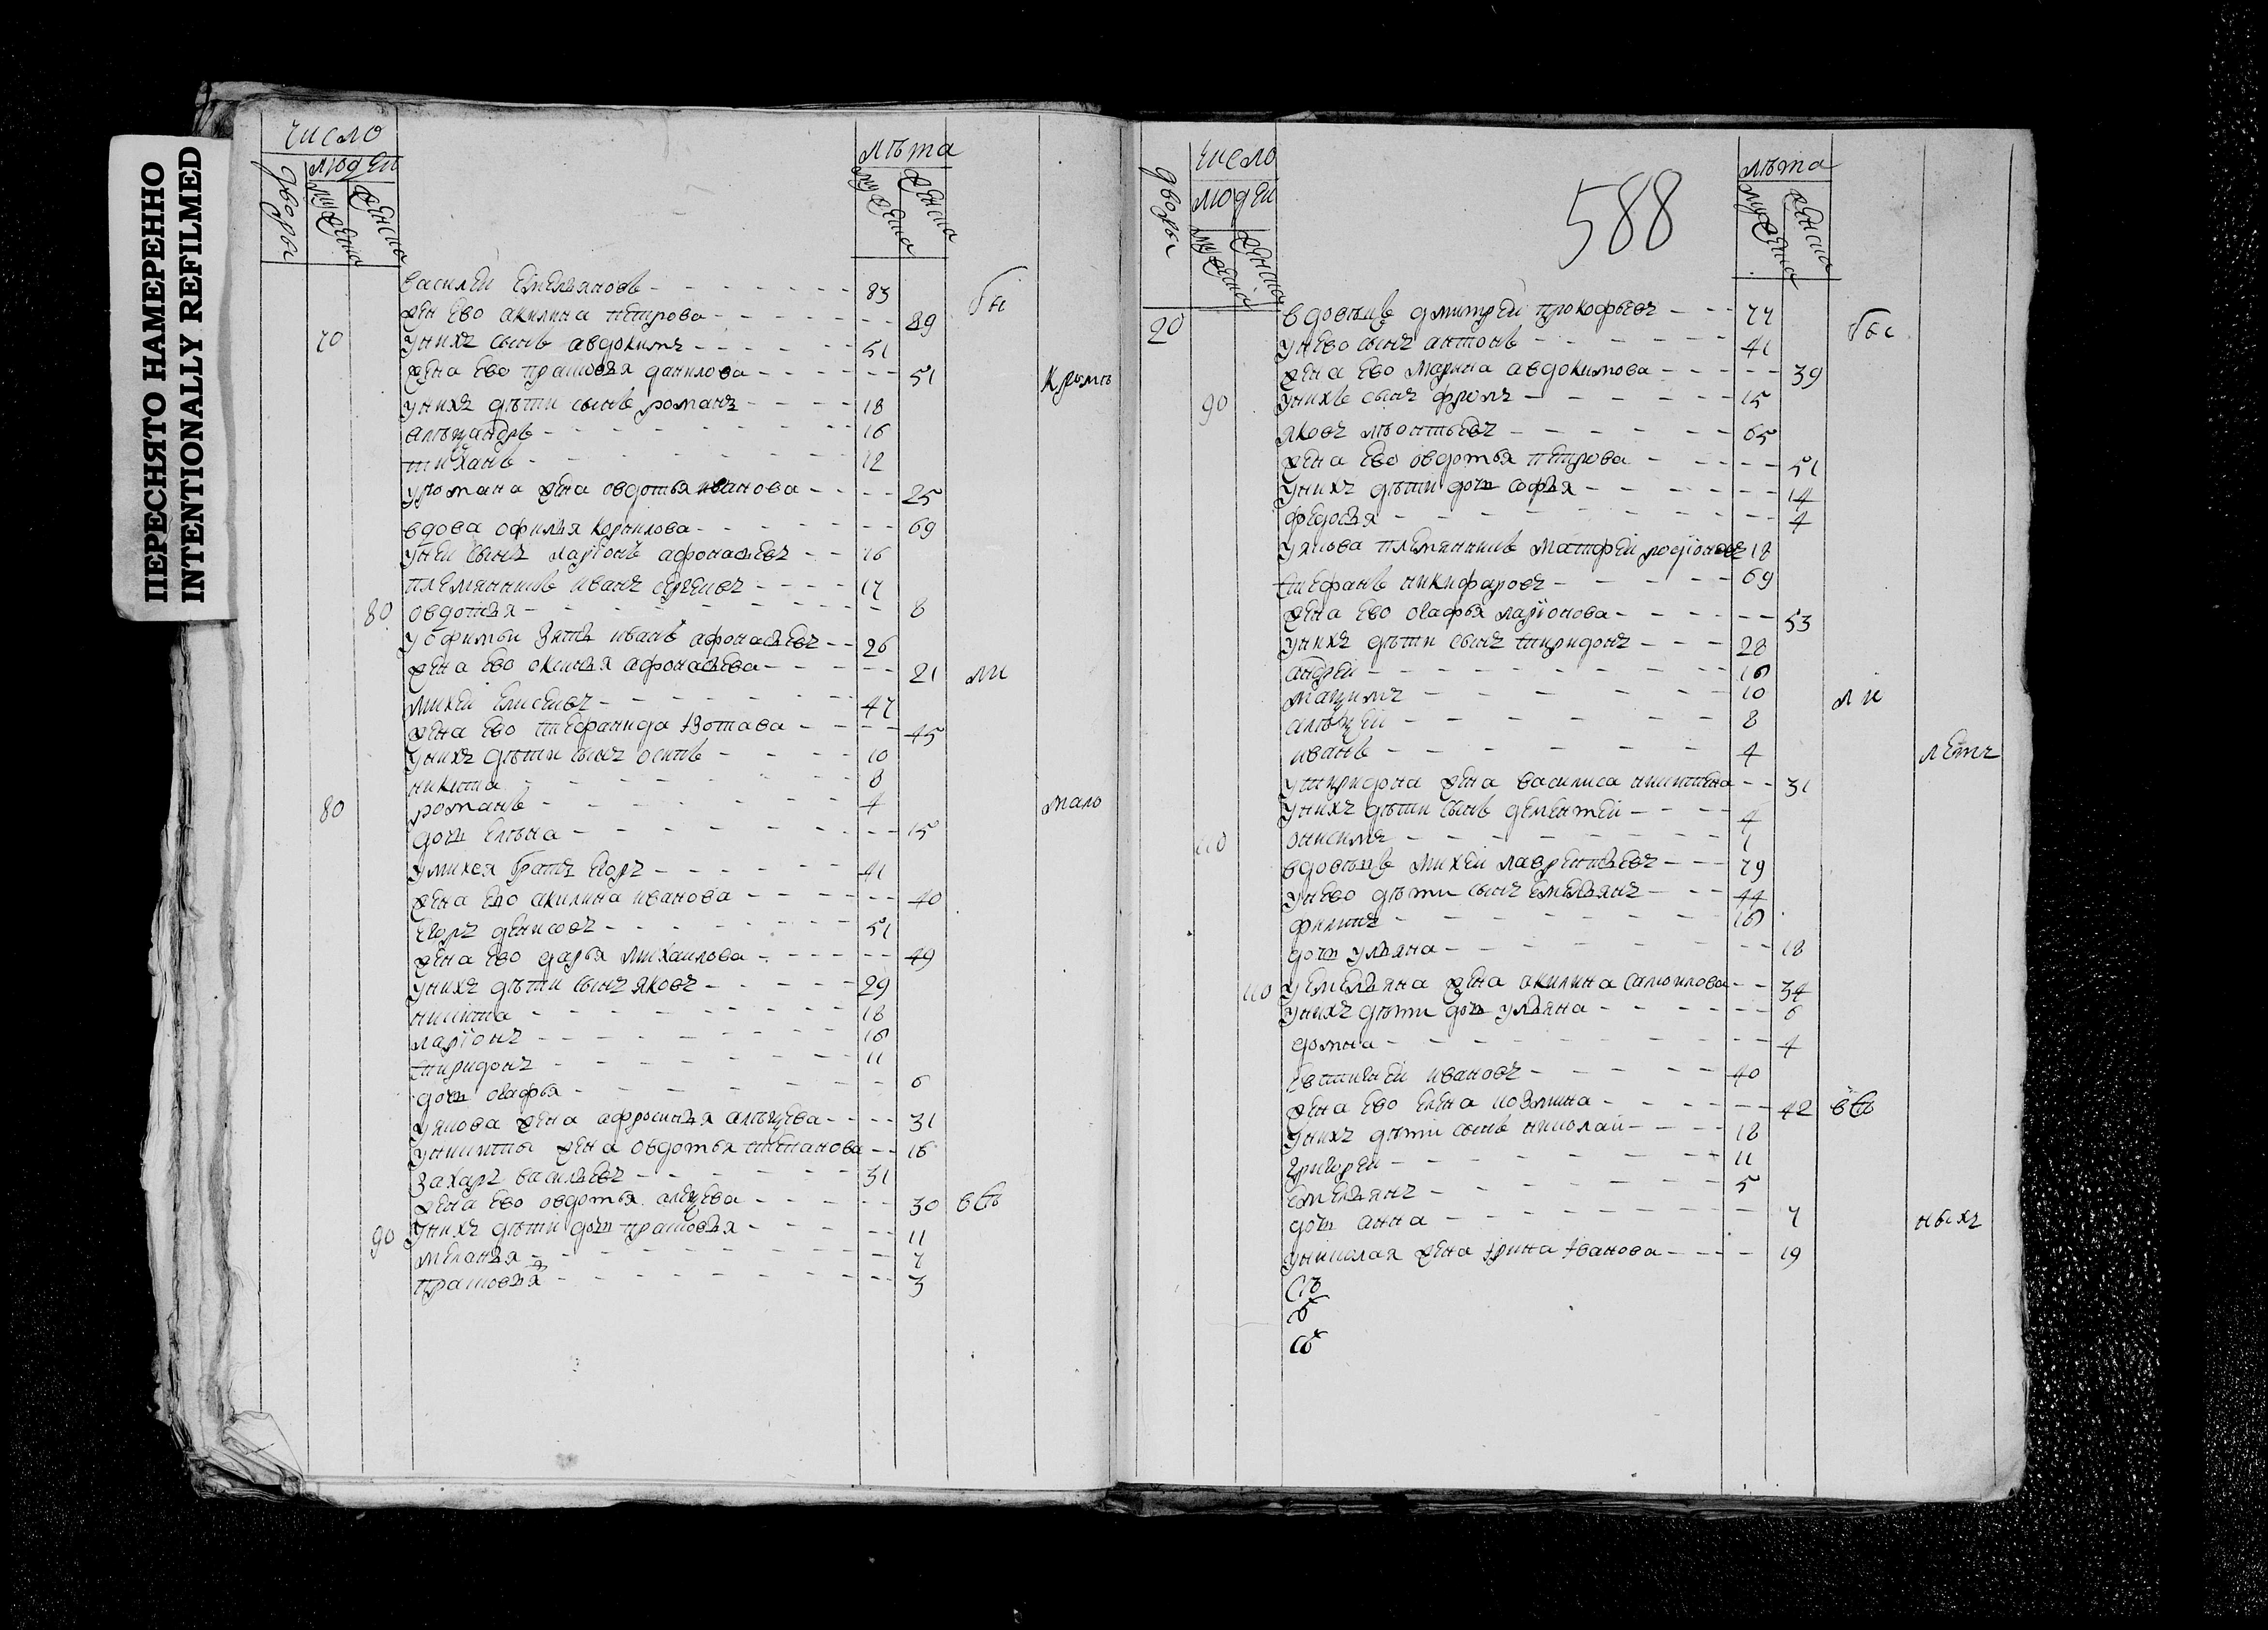 ПЕРЕСНЯТО НАМЕРЕННО
INTENTIONALLY REFILMED
число
людей
дворы
мужеска
женска
лѣта
мужеска
женска
василей Емельяновъ 83
жен Ево акилина петрова 89
бы
70 унихъ сынъ авдокимъ 51
жена Ево прасковья данилова 51
кромѣ
унихъ дѣти сынъ романъ 18
алѣѯандръ 16
тиханъ 12
уромана жена овдотья иванова 25
вдова офимья корнилова 69
уней сынъ ларïонъ афонасьевъ 16
племянникъ иванъ сергеевъ 17
80 овдотья 8
уофимьи зять иванъ афонасьевъ 26
жена Ево оксинья афонасьева 21
ли
михей Елисеевъ 47
жена Ево степанида 45
унихъ дѣти сынъ осипъ 10
никита 8
80 романъ 4
мало
дочь Елѣна 15
умихея братъ Егоръ 41
жена Ево акилина иванова 40
Егоръ денисовъ 51
жена Ево дарья михаилова 49
унихъ дѣти сынъ яковъ 29
никита 18
ларïонъ 16
спиридонъ 11
дочь огафья 6
уякова жена афросинья алѣѯева 31
уникиты жена овдотья степанова 16
захаръ васильевъ 31
жена Ево овдотья алеѯева 30
въсѣ
90 унихъ дѣти дочь прасковья 11
меланья 7
прасковья 3
число
людей
дворы
мужеска
женска
588
лѣта
мужеска
женска
20 вдовецъ дмитрей прокофьевъ 77
бы
унево сынъ антонъ 41
жена Ево марина авдокимова 39
90 унихъ сынъ фролъ 15
яковъ лѣонтьевъ 65
жена Ево овдотья петрова 51
унихъ дѣти дочь софья 14
федосья 4
уякова племянникъ матфей родïоновъ 18
стефанъ никифаровъ 69
жена Ево огафья ларïонова 53
унихъ дѣти сынъ спиридонъ 28
андрей 16
маѯимъ 10
ли
алѣѯей 8
иванъ 4
летъ
успиридона жена василиса никитина 31
унихъ дѣти сынъ дементей 4
онисимъ 1
вдовецъ михей лаврентьевъ 79
унево дѣти сынъ Емельянъ 44
филипъ 16
дочь ульяна 18
уЕмельяна жена акилина самоилова 34
унихъ дѣти дочь ульяна 6
домна 4
Евстигней ивановъ 40
жена Ево Елена козмина 42
въсѣ
унихъ дѣти сынъ николай 18
григорей 11
Емельянъ 5
дочь анна 7
ныхъ
униколая жена ирина иванова 19